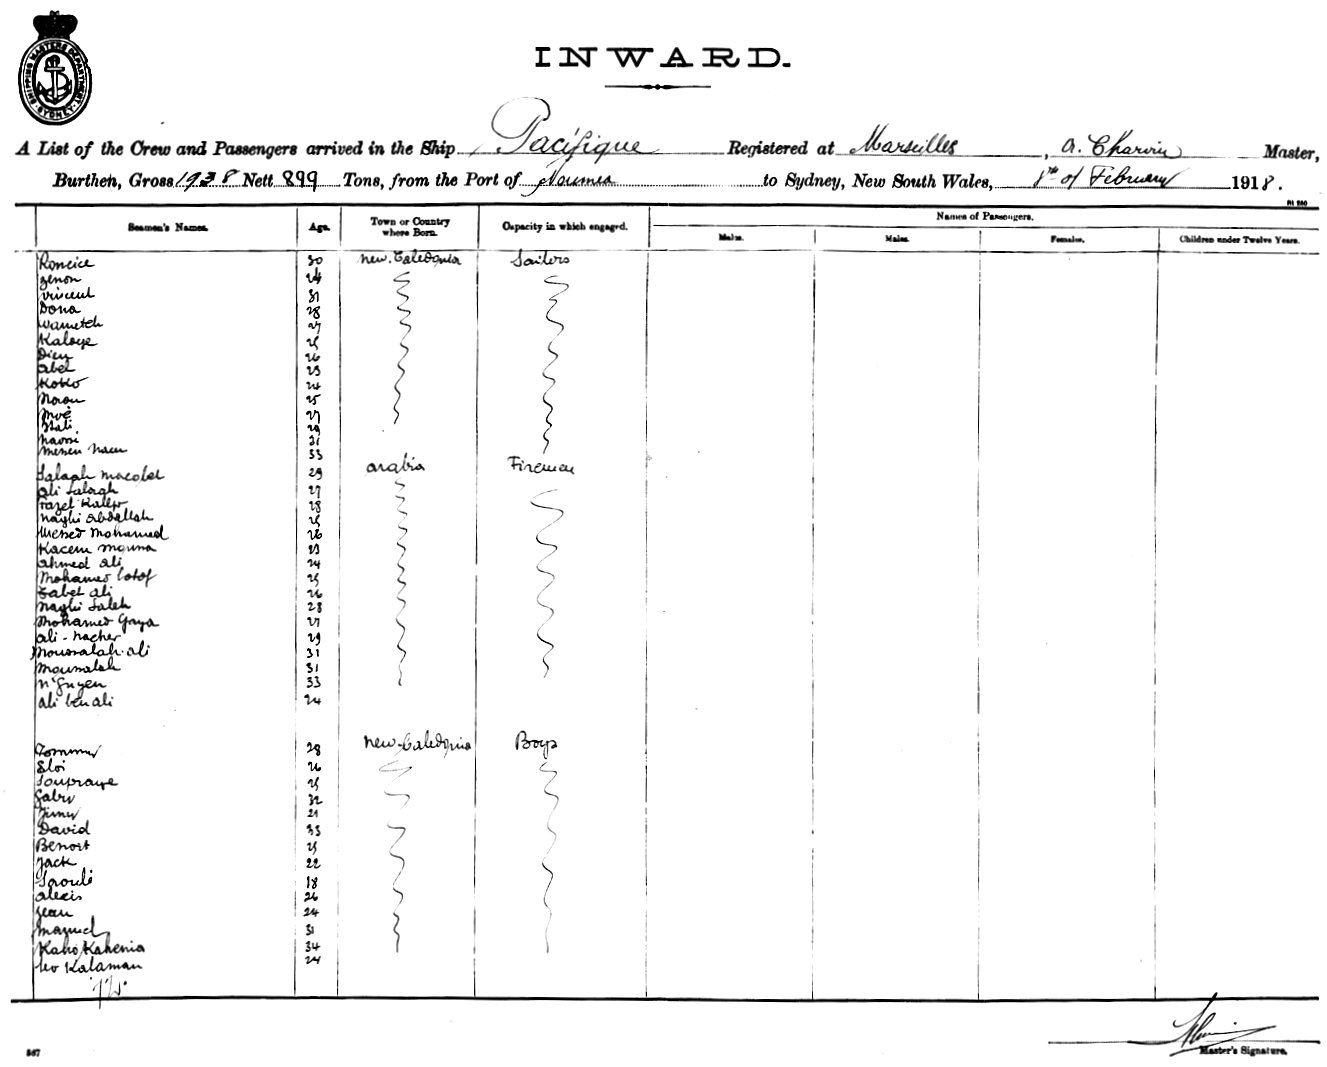 SHIPPING MASTERS DEPARTMENT SYDNEY
INWARD.
A List of the Crew and Passengers arrived in the Ship Pacifique Registered at Marseilles, A. Charvin Master,
Burthen, Gross 1938 Nett 899 Tons, from the Port of Noumea to Sydney, New South Wales, 8th of February 1918.
Seamen's Names. Age. Town or Country where Born. Capacity in which engaged. Names of Passengers.
Males. Males. Females. Children under Twelve Years.
Roncice 30 New. Caledonia Sailors
Zenon 24
Vincent 31
Dona 28
Wametch 27
Kaloye 25
Dieu 26
Abel 23
Koko 24
Norou 25
Moé 27
Itali 29
Navoi 31
33
Salagh Macobet 29 Arabia Firemen
Ali Salagh 27
Fazel 28
Naghi Abdallah 25
Messed Mohamed 26
Kacem Mouna 23
Ahmed Ali 24
Mohamed 25
Zabet Ali 26
Naghi Saleh 28
Mohamed Gaya 27
Ali - Nacher 29
Moussalah Ali 31
Moumalah 31
N'Guyen 33
Ali ben Ali 24
Tommy 28 New-Caledonia Boys
Eloi 26
Soupraye 25
Gaby 32
Jimy 21
David 33
Benoit 25
Jack 22
Saouli 18
Alexis 26
Jean 24
Manuel 31
Kaho Kahenia 34
Leo Kalaman 24
567
Master's Signature.